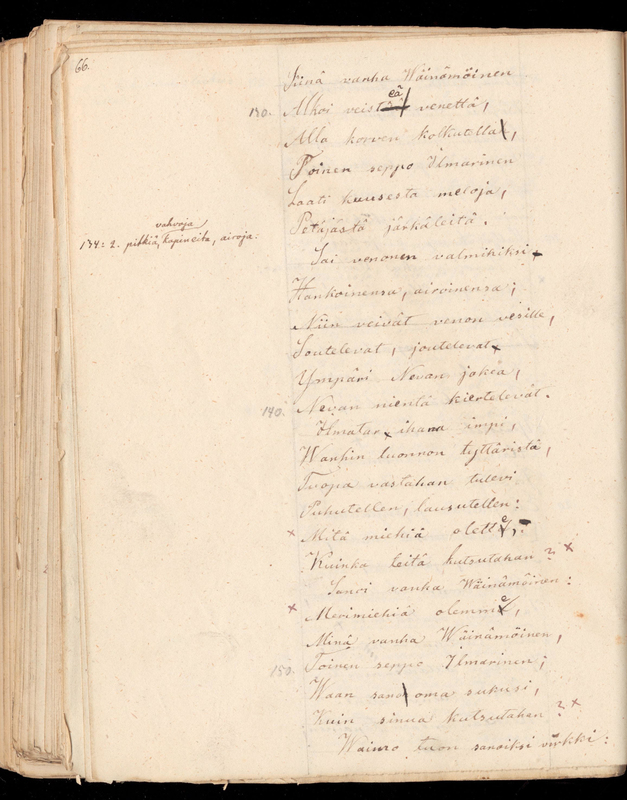 66.
Siinä vanha Wäinämöinen
130. Alkoi veisteä venettä,
Alla korven kolkutella,
Toinen seppo Ilmarinen
Laati kuusesta meloja,
Petäjästä järkäleitä.
134: 2. pitkiä, vahvoja kapineita, airoja:
Sai venonen valmihiksi
Hankoinensa, airoinensa;
Niin veivät venon vesille,
Soutelevat, joutelevat
Ympäri Nevan jokea,
140. Nevan nientä kiertelevät.
Ilmatar ihana impi,
Wanhin luonnon tyttäristä,
Tuopa vastahan tulevi
Puhutellen, lausutellen:
× Mitä miehiä olette,
Kuinka teitä kutsutahan? ×
Sanoi vanha Wäinämöinen:
× Merimiehiä olemme,
Minä vanha Wäinämöinen,
150. Toinen seppo Ilmarinen;
Waan sano oma sukusi,
Kuin sinua kutsutahan? ×
Waimo tuon sanoiksi virkki: